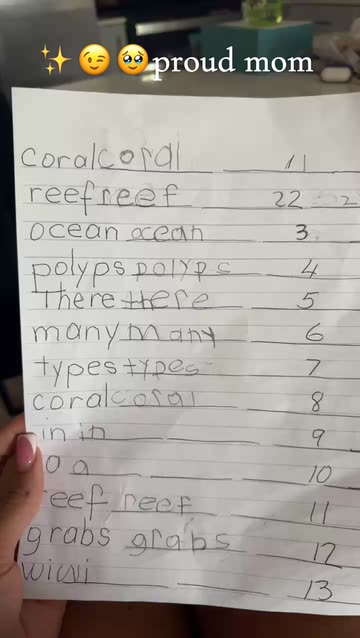 ✨😉🥹proud mom
coral coral 11
reef reef 22 2
ocean ocean 3
polyps polyps 4
There there 5
many many 6
types types 7
coral coral 8
in in 9
a a 10
reef reef 11
grabs grabs 12
wiwi 13